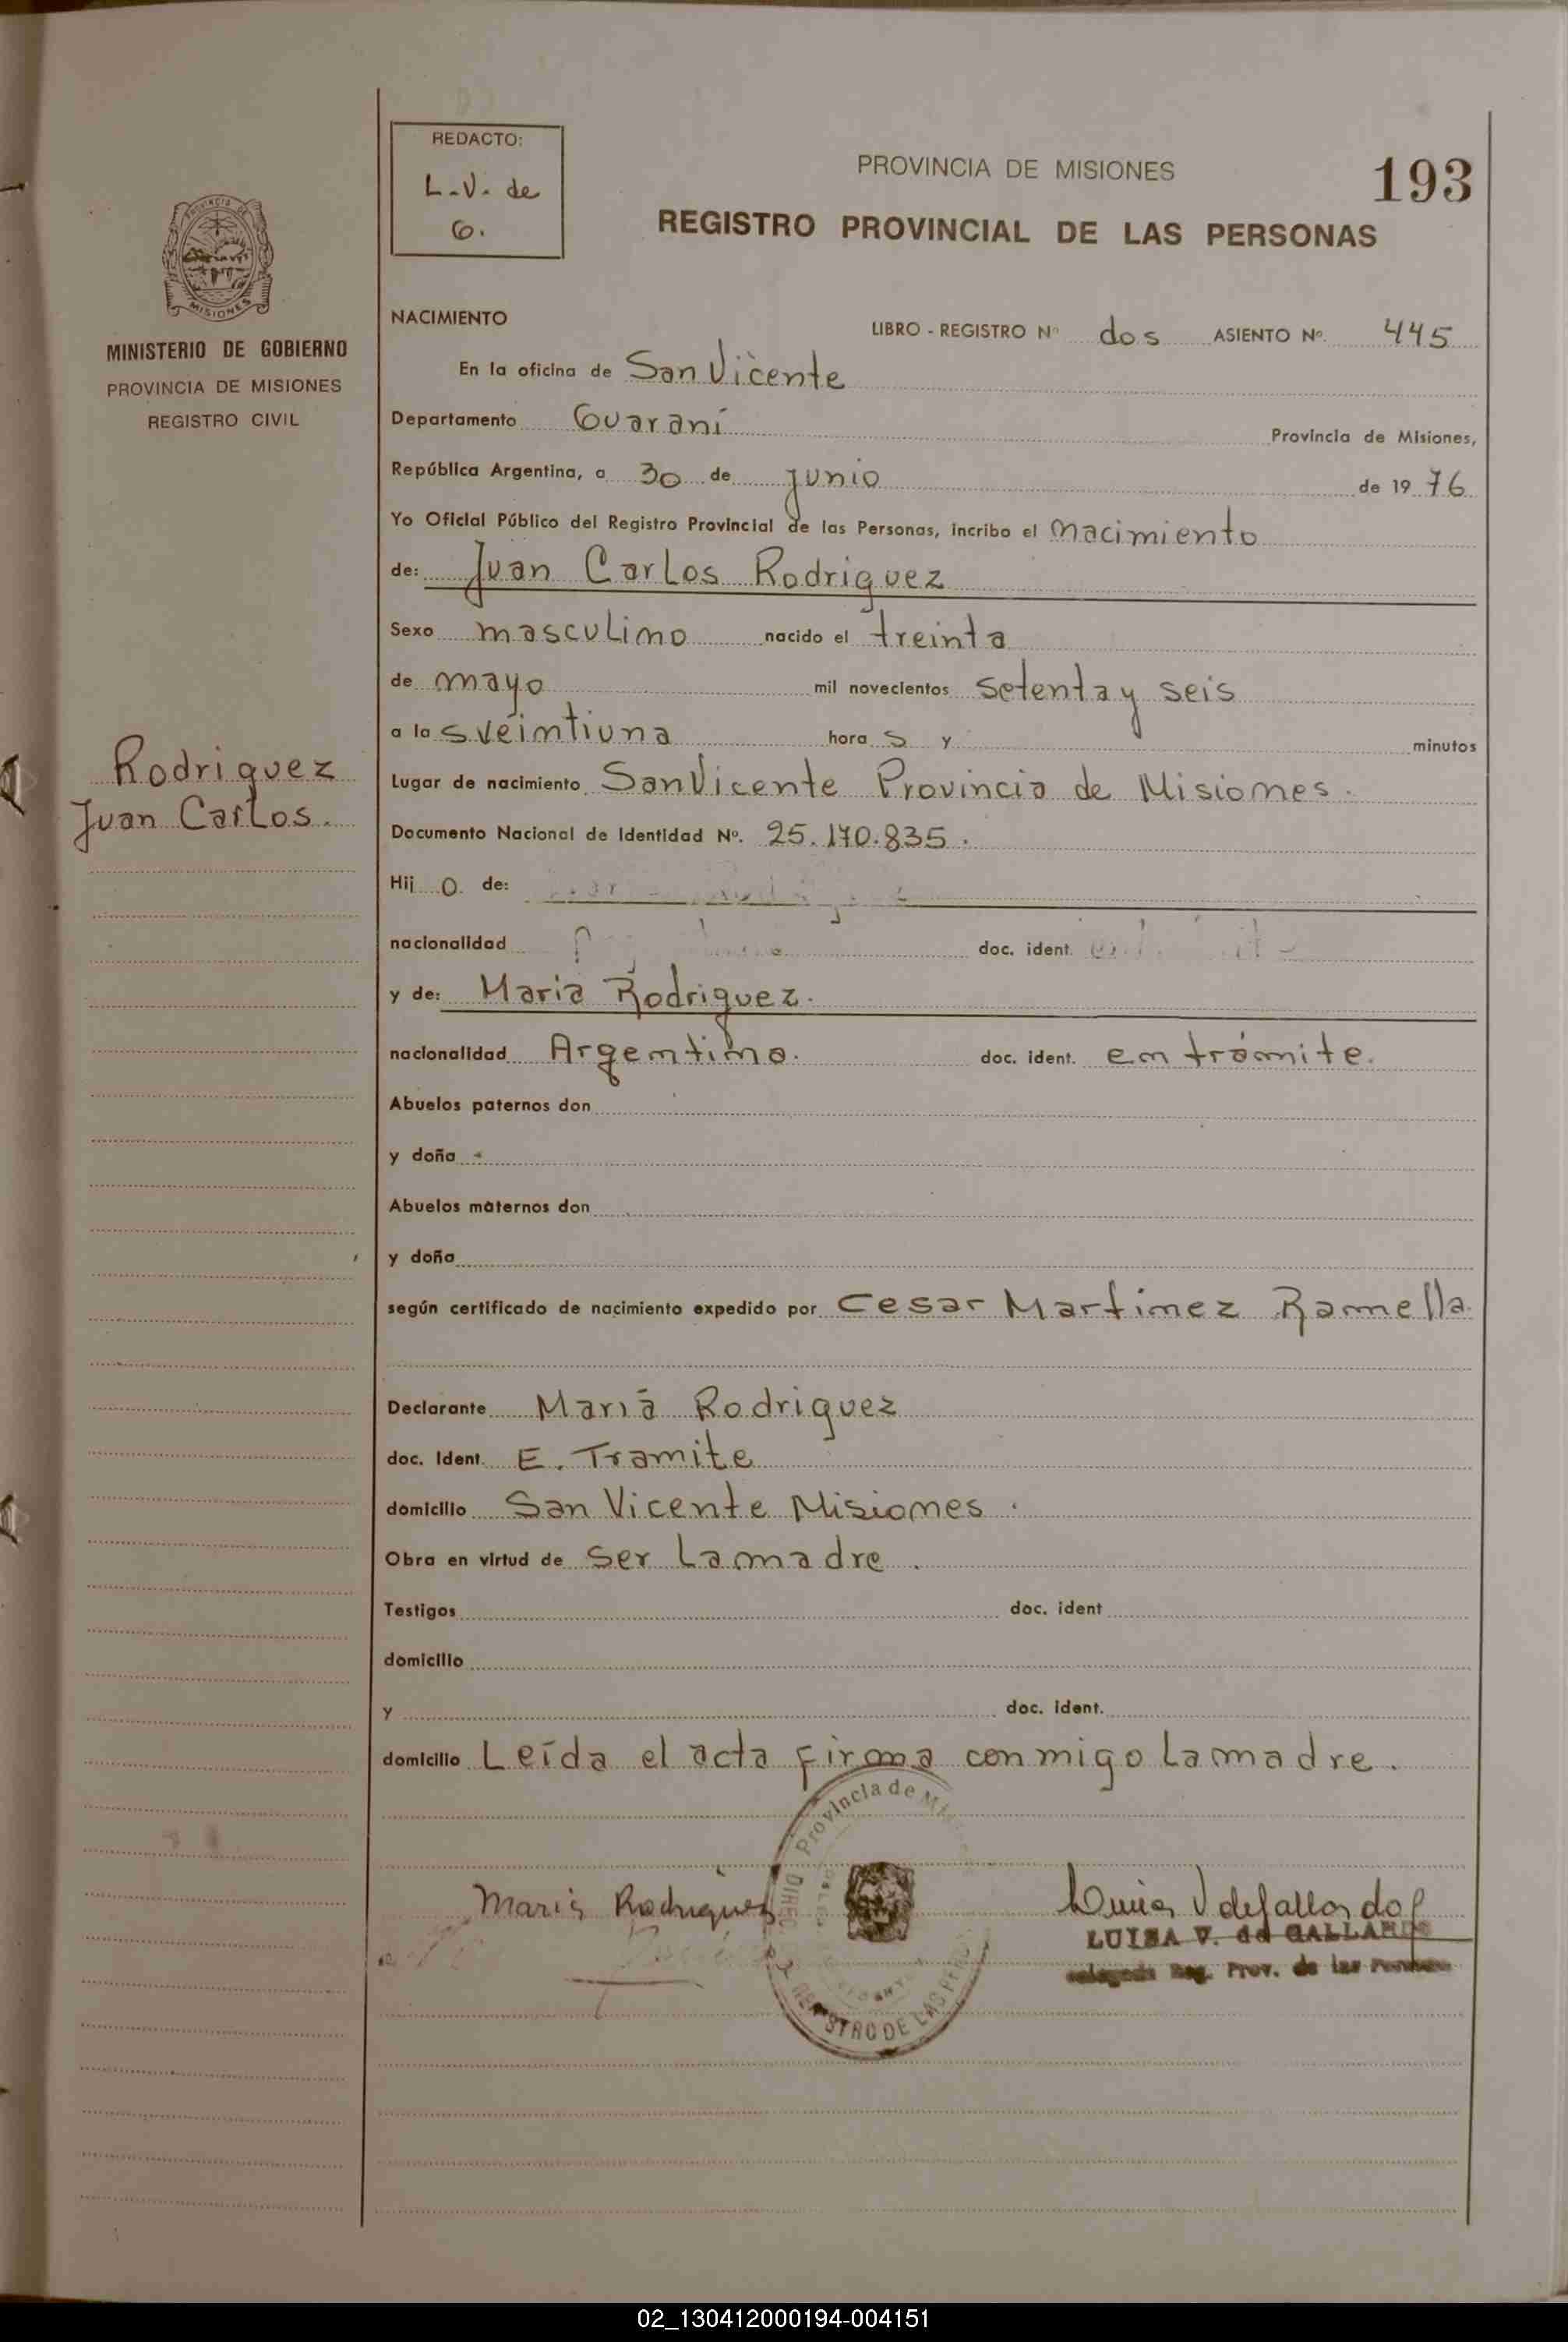 REDACTO:
L.V. de
G.
PROVINCIA DE MISIONES
193
REGISTRO PROVINCIAL DE LAS PERSONAS
PROVINCIA DE
MISIONES
MINISTERIO DE GOBIERNO
PROVINCIA DE MISIONES
REGISTRO CIVIL
Rodriguez
Juan Carlos.
NACIMIENTO
LIBRO - REGISTRO Nº dos ASIENTO Nº. 445
En la oficina de San Vicente
Departamento Guaraní Provincia de Misiones,
República Argentina, a 30 de junio de 1976
Yo Oficial Público del Registro Provincial de las Personas, incribo el nacimiento
de: Juan Carlos Rodriguez
Sexo masculino nacido el treinta
de mayo mil novecientos setenta y seis
a las veintiuna horas y minutos
Lugar de nacimiento San Vicente Provincia de Misiones.
Documento Nacional de Identidad Nº. 25.170.835.
Hijo de:
nacionalidad doc. ident.
y de: Maria Rodriguez.
nacionalidad Argentina. doc. ident. en trámite.
Abuelos paternos don
y doña
Abuelos maternos don
y doña
según certificado de nacimiento expedido por Cesar Martinez Ramella.
Declarante Maria Rodriguez
doc. Ident. E. Tramite
domicilio San Vicente Misiones.
Obra en virtud de ser La madre.
Testigos doc. ident
domicilio
y doc. ident.
domicilio Leída el acta firma conmigo La madre.
Provincia de
DIREC
REGISTRO DE LAS PERS
Maria Rodriguez
Luisa V de Gallardo
LUISA V. de GALLARDO
Reg. Prov. de las Personas
02_130412000194-004151